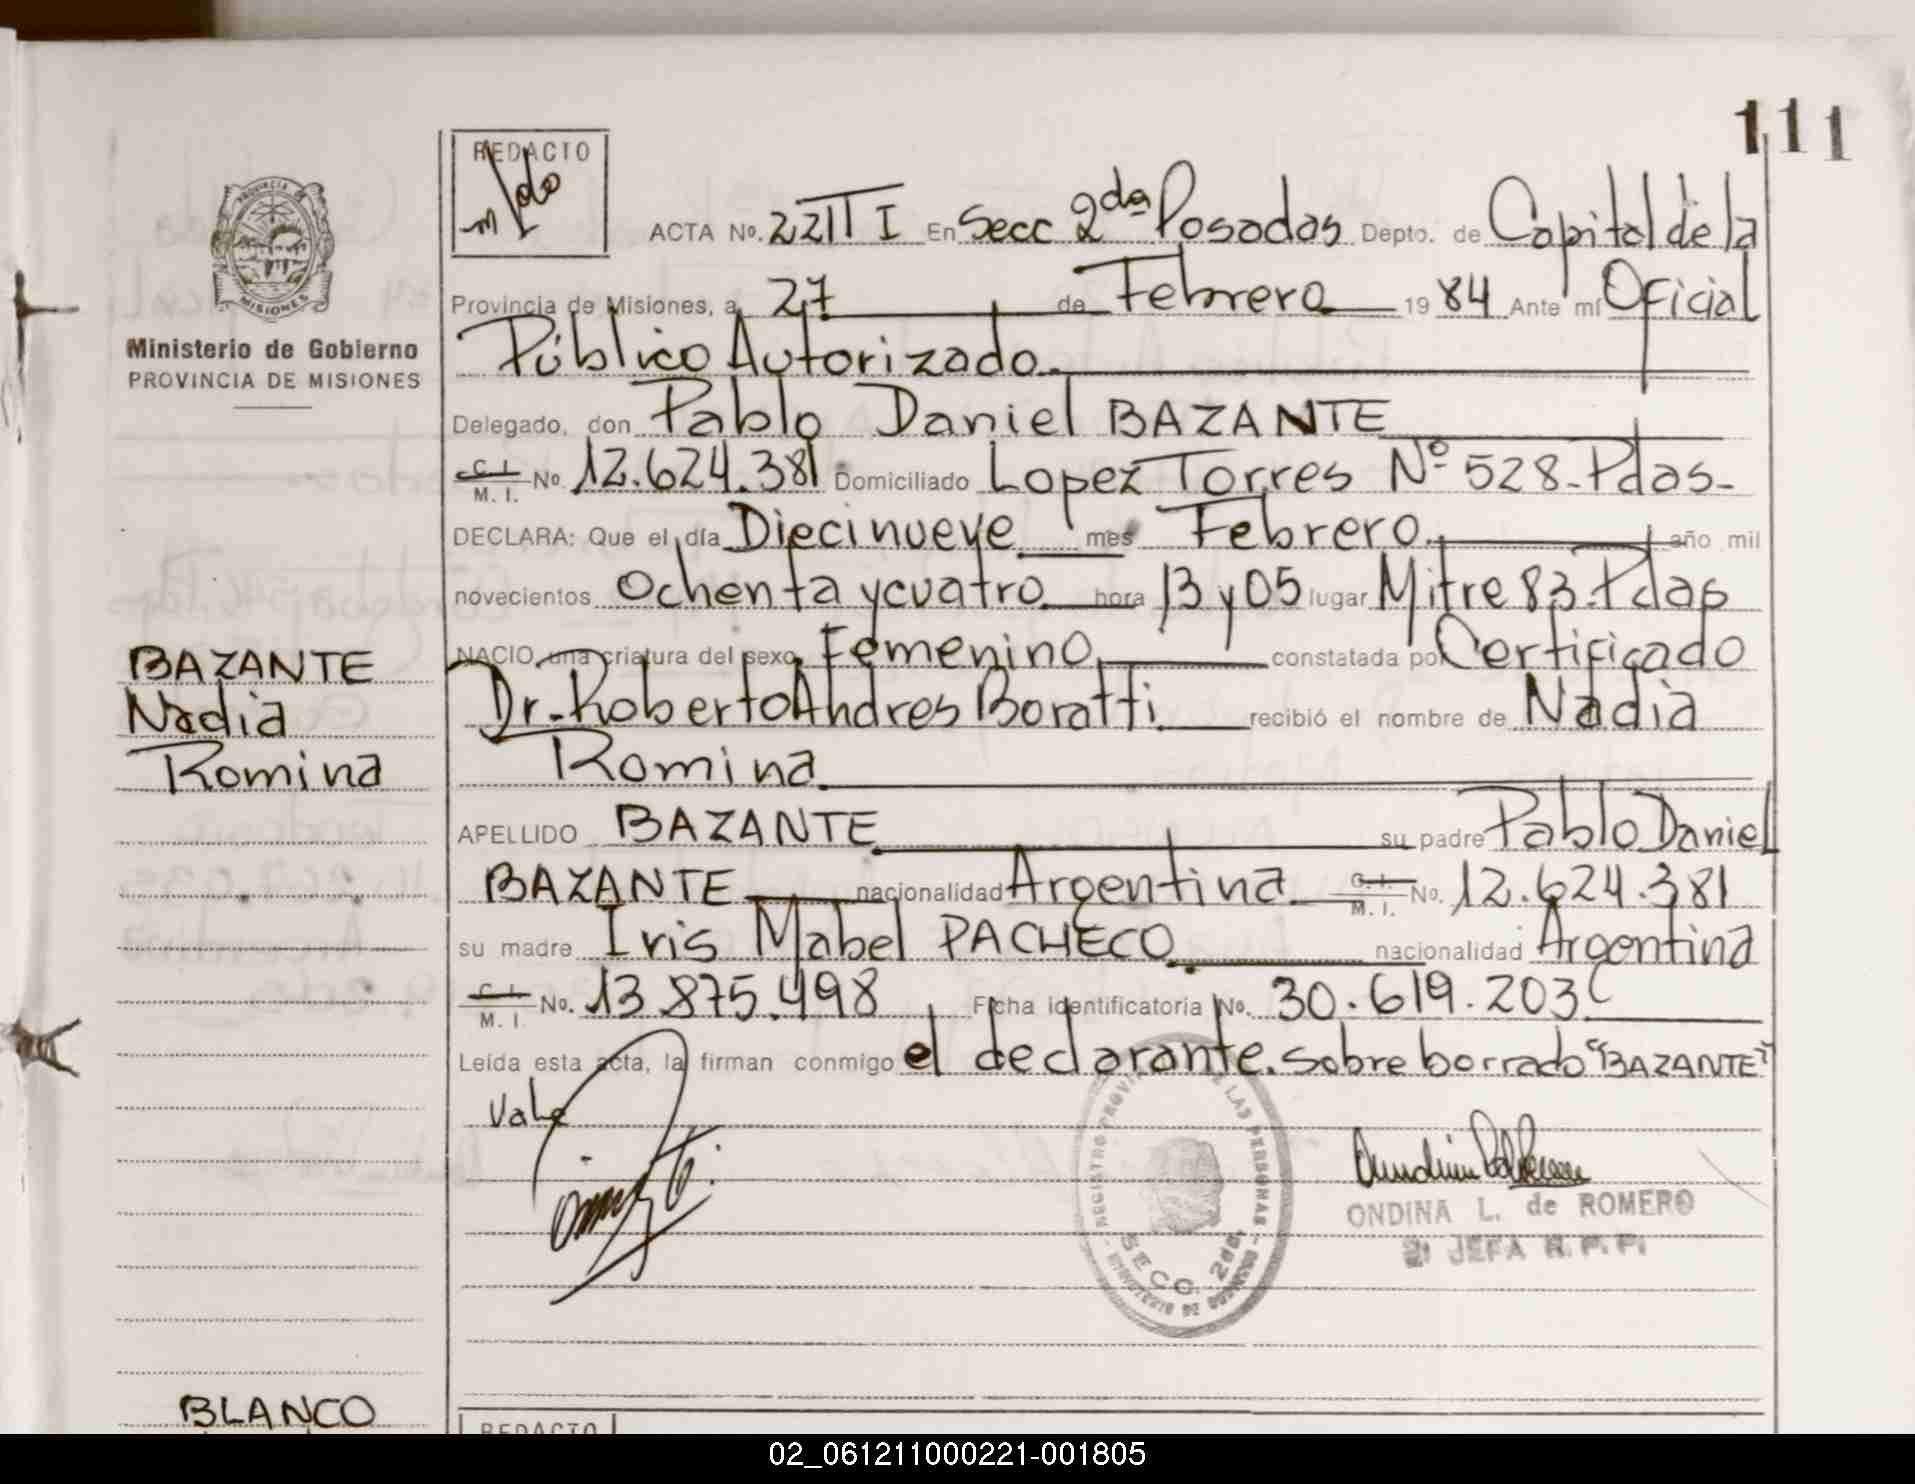 111
REDACTO
ACTA No. 22 TII I En Secc 2da Posadas Depto. de Capital de la
Provincia de Misiones, a 27 de Febrero 1984 Ante mí Oficial
Público Autorizado.
Delegado, don Pablo Daniel BAZANTE
C. I. M. I. No. 12.624.381 Domiciliado Lopez Torres Nº 528-Pdas-
DECLARA: Que el día Diecinueve mes Febrero. año mil
novecientos Ochenta y cuatro hora 13 y 05 lugar Mitre 83.Pdas
NACIO una criatura del sexo Femenino constatada por Certificado
Dr. Roberto Andres Boratti recibió el nombre de Nadia
Romina
APELLIDO BAZANTE su padre Pablo Daniel
BAZANTE nacionalidad Argentina C. I. M. I. No. 12.624.381
su madre Iris Mabel PACHECO nacionalidad Argentina
C. I. M. I. No. 13.875.498 Ficha identificatoria No. 30.619.203
Leída esta acta, la firman conmigo el declarante. sobre borrado "BAZANTE"
Vale
PROVINCIA DE
MISIONES
Ministerio de Gobierno
PROVINCIA DE MISIONES
BAZANTE
Nadia
Romina
BLANCO
REGISTRO PROVINCIAL DE LAS PERSONAS
SECC. 2da.
MINISTERIO DE GOBIERNO
ONDINA L. de ROMERO
JEFA R. P. P.
REDACTO
02_061211000221-001805